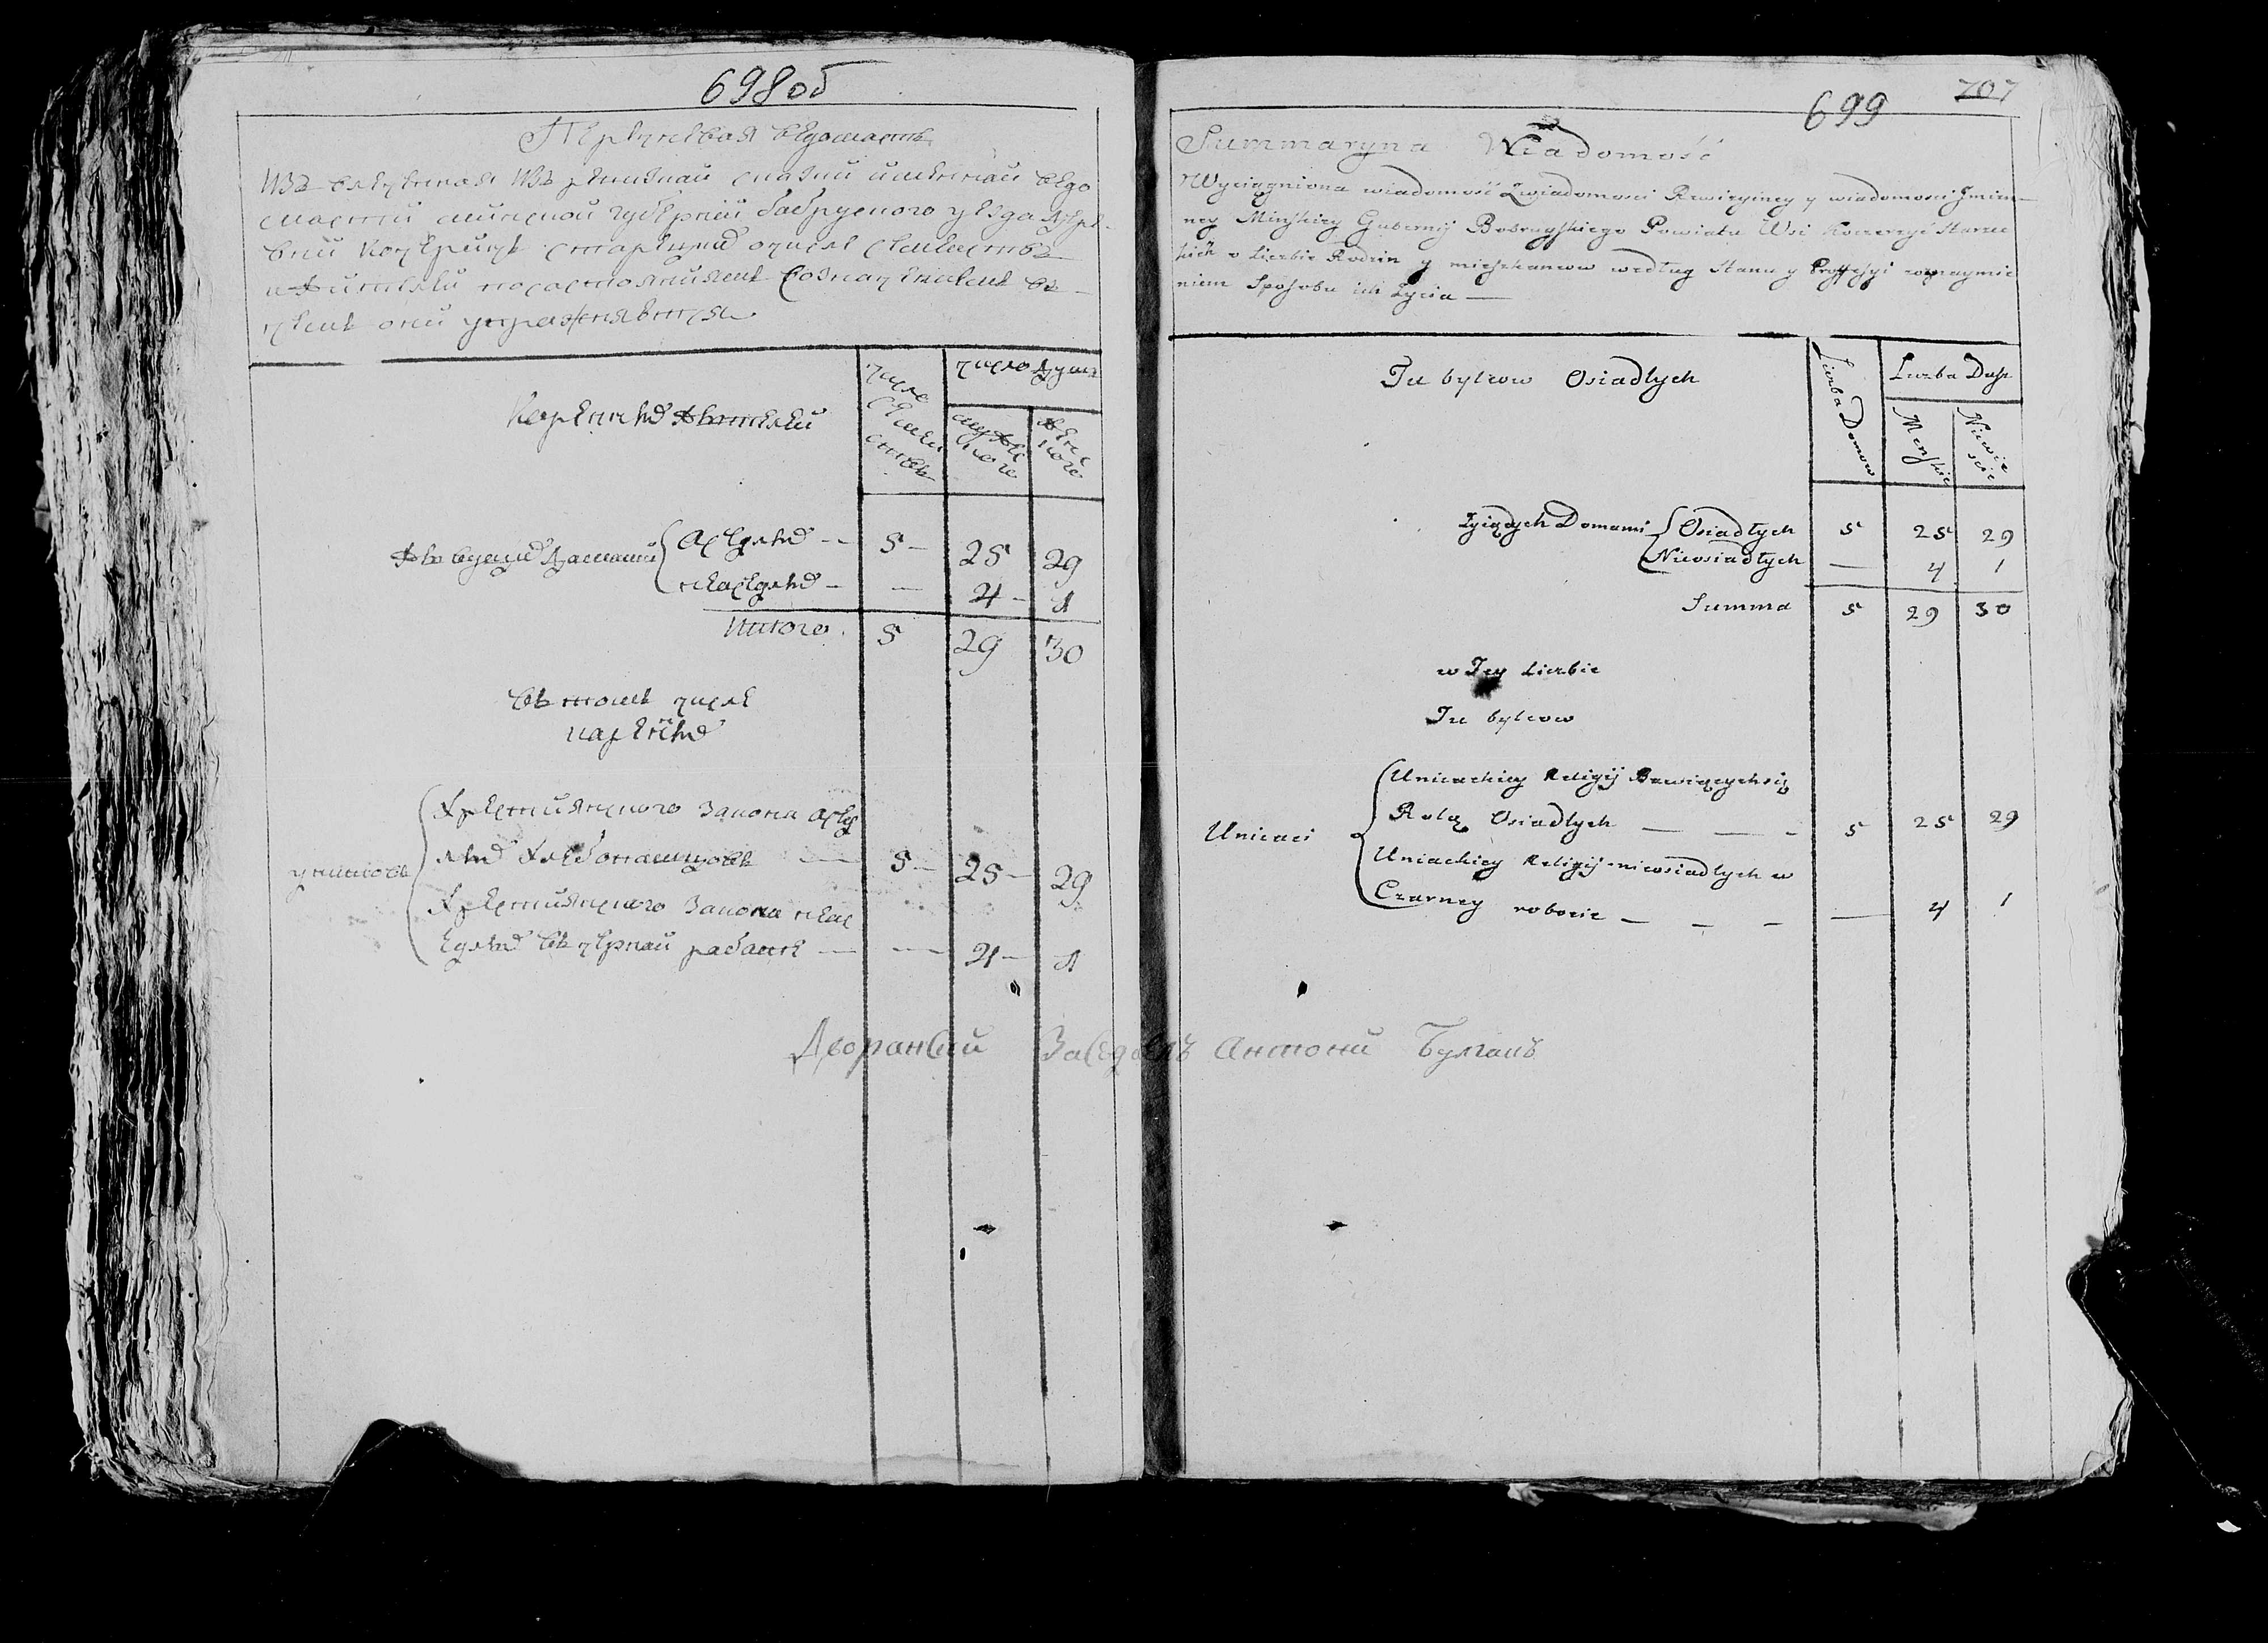 698об
Перечневая ведомасть
Изъ влеченная Изъ ревизкаи сказки именнаи ведо
масти минской губернии бобруского уезда дере
вни
числомъ семействъ
и жителей по состояниямъ вознач
чемъ они упражняютца
Коренныхъ жителей
число семействъ
число душъ
мужескаго
женскаго
живущихъ домами
оседлыхъ -- 5 - 25 29
неоседлыхъ - — 4 - 1
Итого 5 29 30
въ томъ числе
коренныхъ
униятовъ
Хрестиянского закона осед
лыхъ хлебопашцовъ — 5 - 25 - 29
Хрестиянского закона неос
едлыхъ въ чернаи работе — -- 4 - 1
Дворански Заседатель Антони Булгакъ
699 707
Summaryna Wiadomość
Wyciągniona wiadomość z wiadomosci Rewizyiney y wiadomosci Jmien-
ney Minskiey Gubernij Bobruyskiego Powiatu Wsi
o Liczbie Rodzin y mieszkancow według Stanu y Proffessyi
niem Sposobu ich życia —
Tu bylcow Osiadlych
Liczba Domow
Liczba Dusz
Menskie
Niewiescie
Zyiących Domami
Osiadlych 5 25 29
Nieosiadlych — 4 1
Summa 5 29 30
w Tey Liczbie
Tu bylcow
Uniaci
Uniackiey Religij Bawiących się
Rolą Osiadlych — — - 5 25 29
Uniackiey Religij nieosiadlych w
Czarney robocie — - - — 4 1